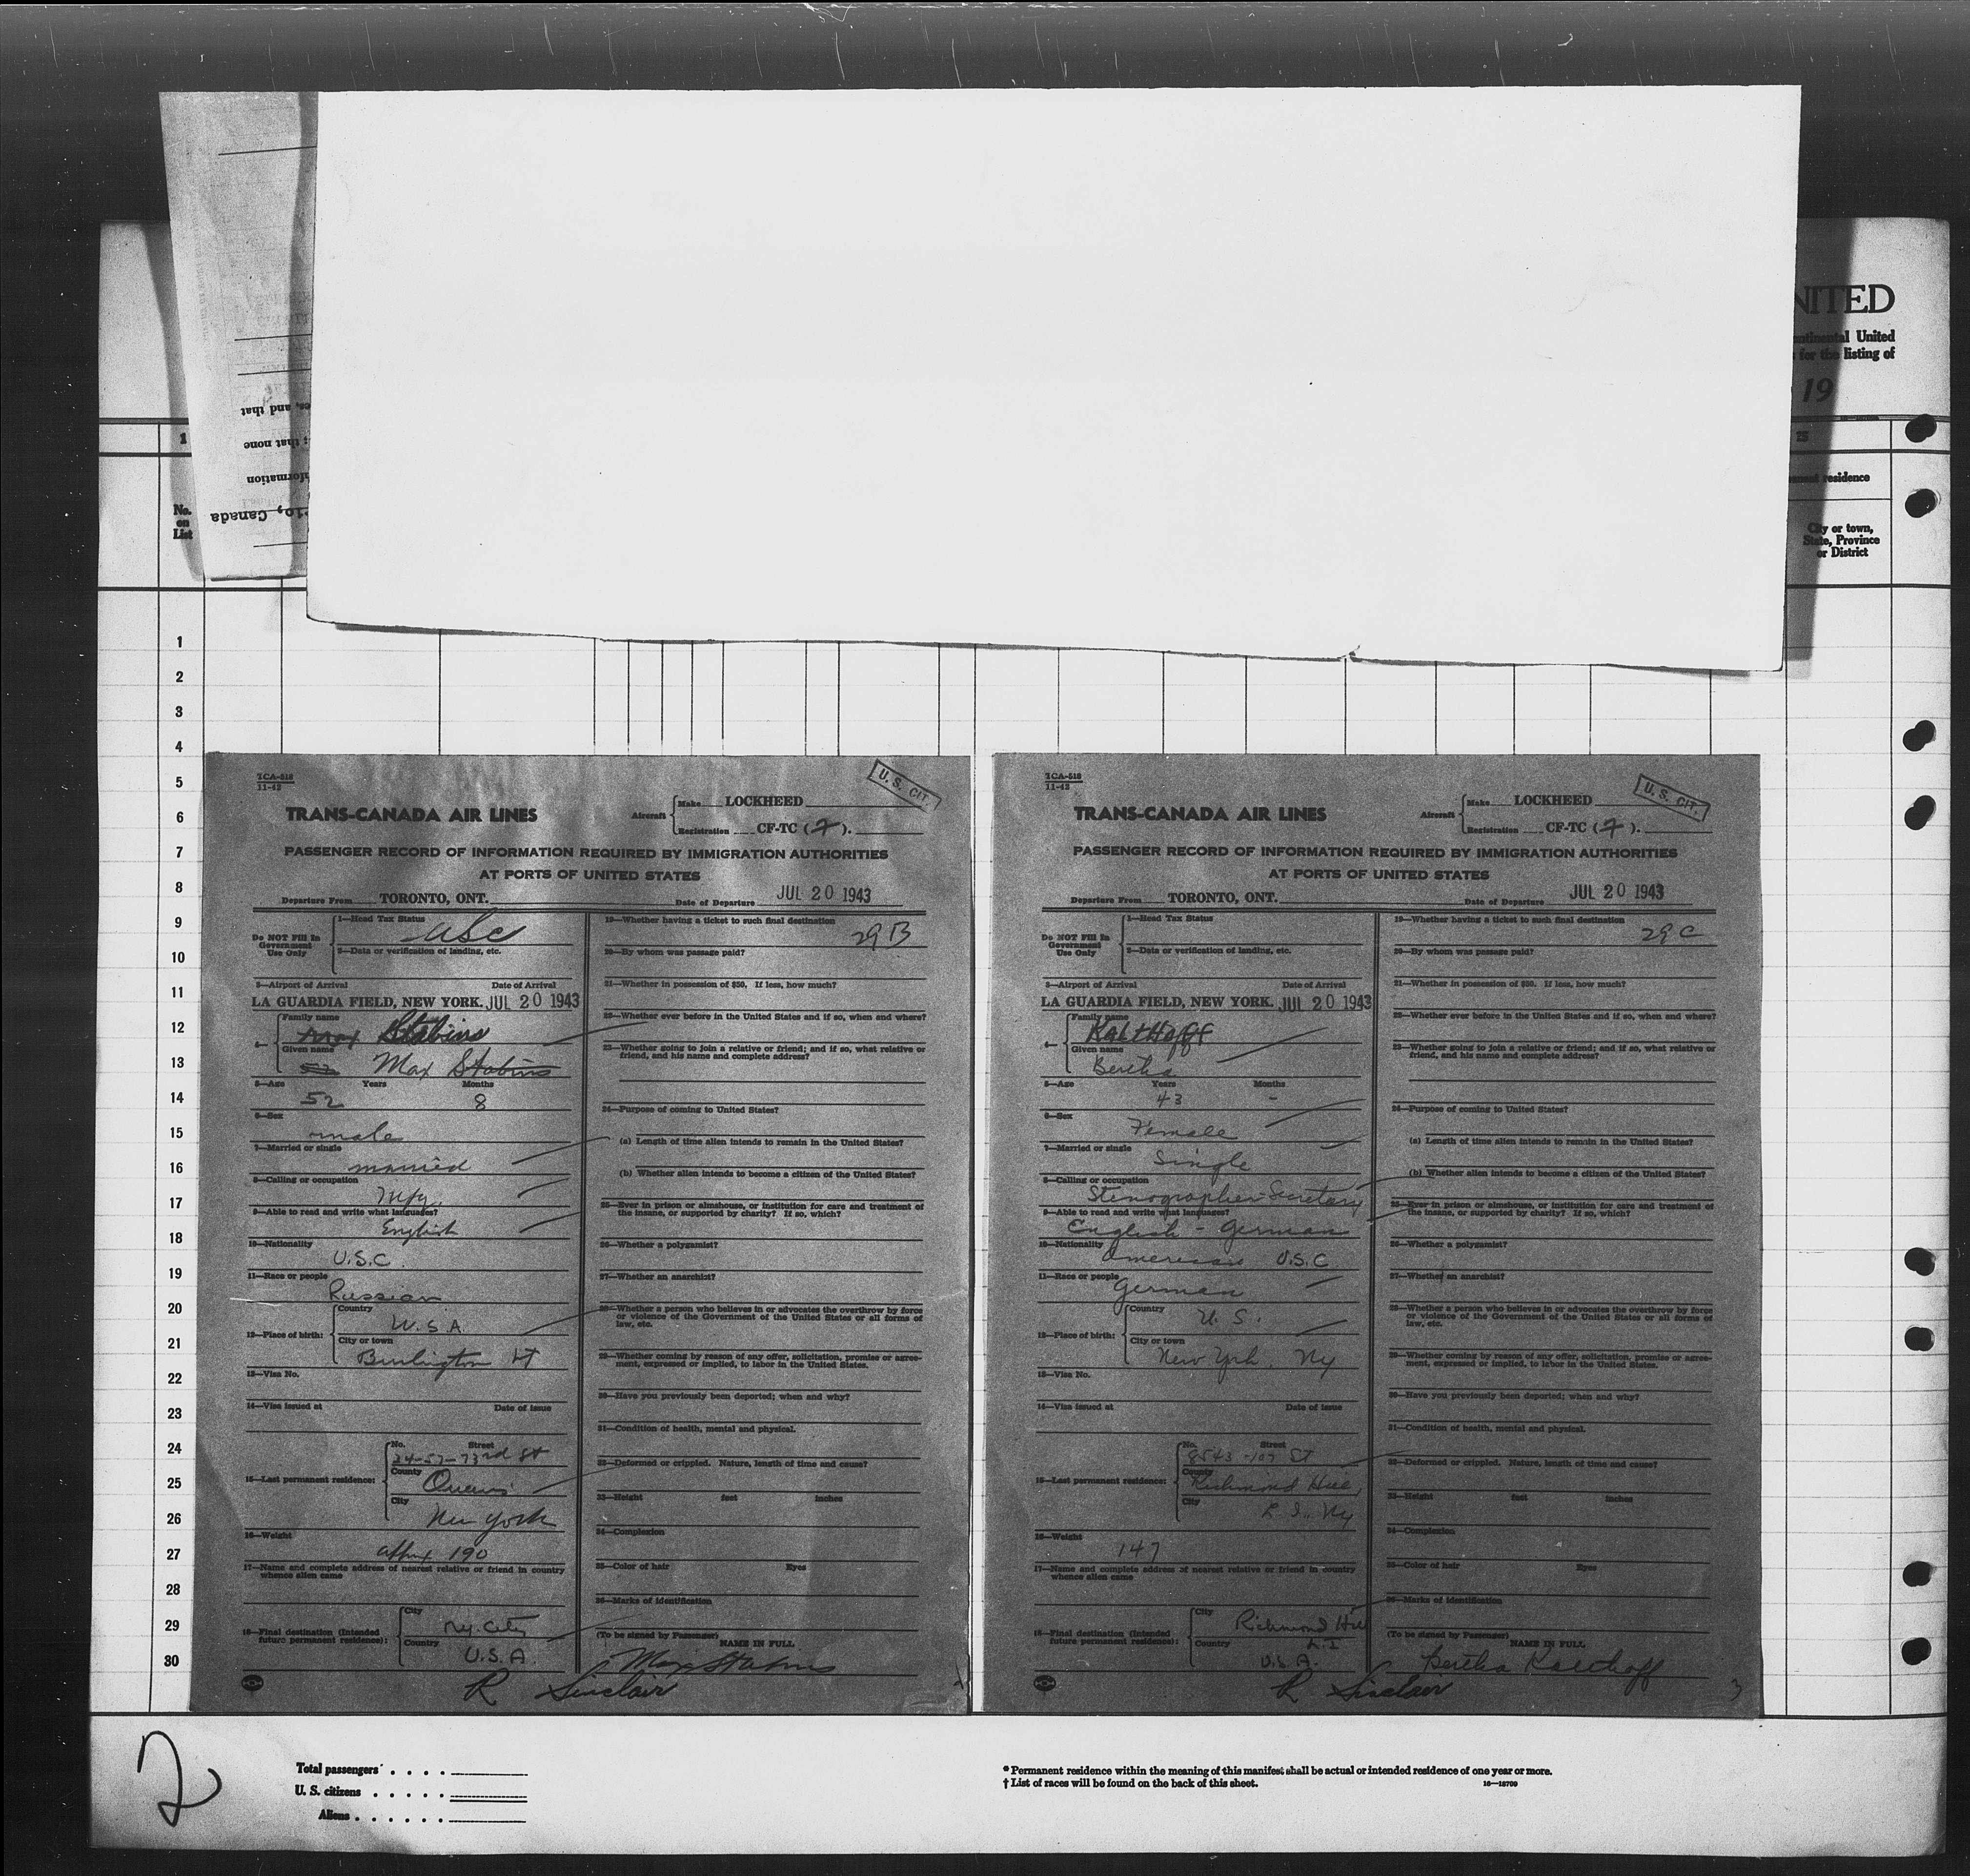 NITED
ntinental United
for the listing of
19
1
25
residence
No.
on
List
City or town,
State, Province
or District
es, and that
that none
formation
Canada
1
2
3
4
5
6
7
8
9
10
11
12
13
14
15
16
17
18
19
20
21
22
23
24
25
26
27
28
29
30
TCA-518
11-42
U. S. CIT.
TRANS-CANADA AIR LINES
Aircraft
Make LOCKHEED
Registration CF-TC (7).
PASSENGER RECORD OF INFORMATION REQUIRED BY IMMIGRATION AUTHORITIES
AT PORTS OF UNITED STATES
Departure From TORONTO, ONT. Date of Departure JUL 20 1943
Do NOT Fill In
Government
Use Only
1—Head Tax Status
USC
2—Data or verification of landing, etc.
3—Airport of Arrival Date of Arrival
LA GUARDIA FIELD, NEW YORK. JUL 20 1943
4—
Family name
Max Stabins
Given name
Max Stabins
5—Age Years Months
52 8
6—Sex
male
7—Married or single
married
8—Calling or occupation
Mfg.
9—Able to read and write what languages?
English
10—Nationality
U.S.C.
11—Race or people
Russian
12—Place of birth:
Country
U.S.A.
City or town
Burlington Vt
13—Visa No.
14—Visa issued at Date of issue
15—Last permanent residence:
No. Street
34-57-73rd St
County
Queens
City
New York
16—Weight
approx 190
17—Name and complete address of nearest relative or friend in country
whence alien came
18—Final destination (Intended
future permanent residence):
City
Ny. City
Country
U.S.A.
19—Whether having a ticket to such final destination
29B
20—By whom was passage paid?
21—Whether in possession of $50. If less, how much?
22—Whether ever before in the United States and if so, when and where?
23—Whether going to join a relative or friend; and if so, what relative or
friend, and his name and complete address?
24—Purpose of coming to United States?
(a) Length of time alien intends to remain in the United States?
(b) Whether alien intends to become a citizen of the United States?
25—Ever in prison or almshouse, or institution for care and treatment of
the insane, or supported by charity? If so, which?
26—Whether a polygamist?
27—Whether an anarchist?
28—Whether a person who believes in or advocates the overthrow by force
or violence of the Government of the United States or all forms of
law, etc.
29—Whether coming by reason of any offer, solicitation, promise or agree-
ment, expressed or implied, to labor in the United States.
30—Have you previously been deported; when and why?
31—Condition of health, mental and physical.
32—Deformed or crippled. Nature, length of time and cause?
33—Height feet inches
34—Complexion
35—Color of hair Eyes
36—Marks of identification
(To be signed by Passenger)
NAME IN FULL
Max Stabins
R Sinclair
TCA-518
11-42
U. S. CIT.
TRANS-CANADA AIR LINES
Aircraft
Make LOCKHEED
Registration CF-TC (7).
PASSENGER RECORD OF INFORMATION REQUIRED BY IMMIGRATION AUTHORITIES
AT PORTS OF UNITED STATES
Departure From TORONTO, ONT. Date of Departure JUL 20 1943
Do NOT Fill In
Government
Use Only
1—Head Tax Status
2—Data or verification of landing, etc.
3—Airport of Arrival Date of Arrival
LA GUARDIA FIELD, NEW YORK. JUL 20 1943
4—
Family name
Kalthoff
Given name
Bertha
5—Age Years Months
43 -
6—Sex
Female
7—Married or single
Single
8—Calling or occupation
Stenographer-Secretary
9—Able to read and write what languages?
English - German
10—Nationality
American U.S.C
11—Race or people
German
12—Place of birth:
Country
U. S.
City or town
New York, Ny
13—Visa No.
14—Visa issued at Date of issue
15—Last permanent residence:
No. Street
8543-107 St
County
Richmond Hill,
City
L. I., Ny
16—Weight
147
17—Name and complete address of nearest relative or friend in country
whence alien came
18—Final destination (Intended
future permanent residence):
City
Richmond Hill
L.I
Country
U.S.A.
19—Whether having a ticket to such final destination
29C
20—By whom was passage paid?
21—Whether in possession of $50. If less, how much?
22—Whether ever before in the United States and if so, when and where?
23—Whether going to join a relative or friend; and if so, what relative or
friend, and his name and complete address?
24—Purpose of coming to United States?
(a) Length of time alien intends to remain in the United States?
(b) Whether alien intends to become a citizen of the United States?
25—Ever in prison or almshouse, or institution for care and treatment of
the insane, or supported by charity? If so, which?
26—Whether a polygamist?
27—Whether an anarchist?
28—Whether a person who believes in or advocates the overthrow by force
or violence of the Government of the United States or all forms of
law, etc.
29—Whether coming by reason of any offer, solicitation, promise or agree-
ment, expressed or implied, to labor in the United States.
30—Have you previously been deported; when and why?
31—Condition of health, mental and physical.
32—Deformed or crippled. Nature, length of time and cause?
33—Height feet inches
34—Complexion
35—Color of hair Eyes
36—Marks of identification
(To be signed by Passenger)
NAME IN FULL
Bertha Kalthoff
R Sinclair
3
2
Total passengers . . . .
U. S. citizens . . . . .
Aliens . . . . . .
* Permanent residence within the meaning of this manifest shall be actual or intended residence of one year or more.
† List of races will be found on the back of this sheet.
16—18709